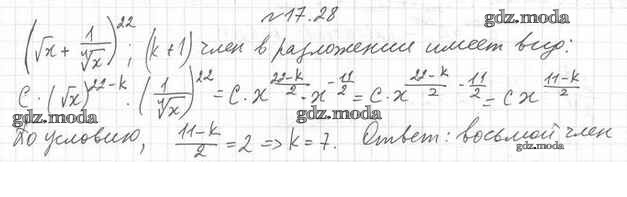 №17.28
gdz.moda
(√x + 1/∜x)^22; (k+1) член в разложении имеет вид:
C · (√x)^(22-k) · (1/∜x)^22 = C · x^((22-k)/2) · x^(-11/2) = C · x^((22-k)/2 - 11/2) = C x^((11-k)/2)
gdz.moda gdz.moda gdz.moda
По условию, (11-k)/2 = 2 => k = 7. Ответ: восьмой член
gdz.moda